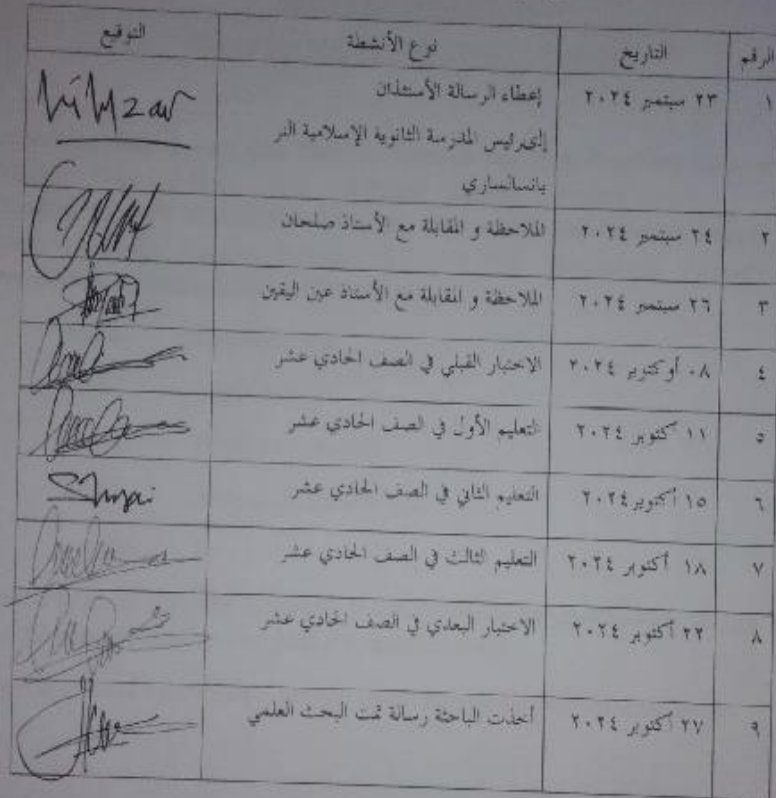 الرقم التاريخ نوع الأنشطة التوقيع
١ ٢٣ سبتمبر ٢٠٢٤ إعطاء الرسالة الأستئذان
إلى رئيس المدرسة الثانوية الإسلامية النر
بانسانساري
٢ ٢٤ سبتمبر ٢٠٢٤ الملاحظة و المقابلة مع الأستاذ صلحان
٣ ٢٦ سبتمبر ٢٠٢٤ الملاحظة و المقابلة مع الأستاذ عين اليقين
٤ ٠٨ أوكتوبر ٢٠٢٤ الاختبار القبلي في الصف الحادي عشر
٥ ١١ كتوبر ٢٠٢٤ التعليم الأول في الصف الحادي عشر
٦ ١٥ أكتوبر ٢٠٢٤ التعليم الثاني في الصف الحادي عشر
٧ ١٨ أكتوبر ٢٠٢٤ التعليم الثالث في الصف الحادي عشر
٨ ٢٢ أكتوبر ٢٠٢٤ الاختبار البعدي في الصف الحادي عشر
٩ ٢٧ أكتوبر ٢٠٢٤ أخذت الباحثة رسالة تمت البحث العلمي